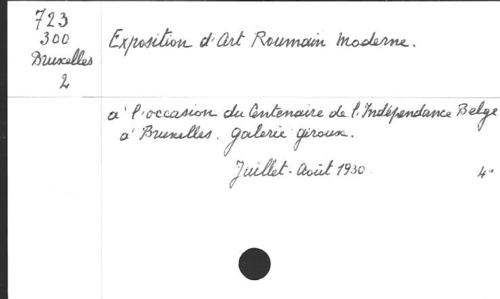 723
300
Bruxelles
2
Exposition d'Art Roumain Moderne.
a' l'occasion du Centenaire de l'Indépendance Belge
a' Bruxelles. Galerie Giroux.
Juillet - Août 1930.
4°